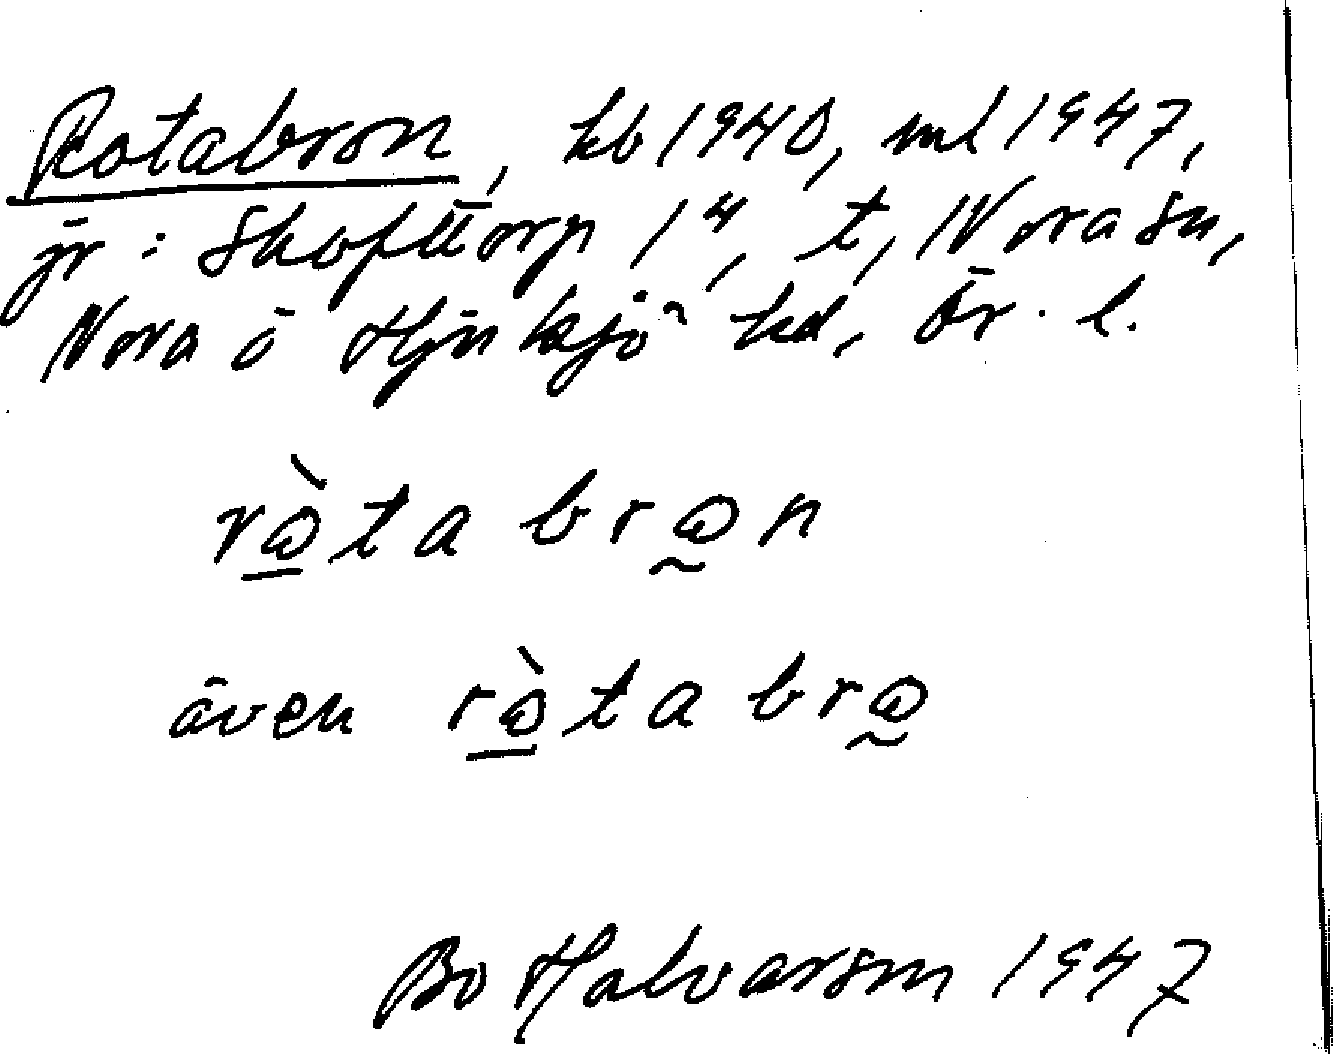 Rotabron, kb 1940, ml 1947,
gr: Skofttorp 1⁴, t, Nora sn,
Nora o Hju kd, Ör. l.
rὼta brωn
även rὼta brω
Bo Halvarson 1947